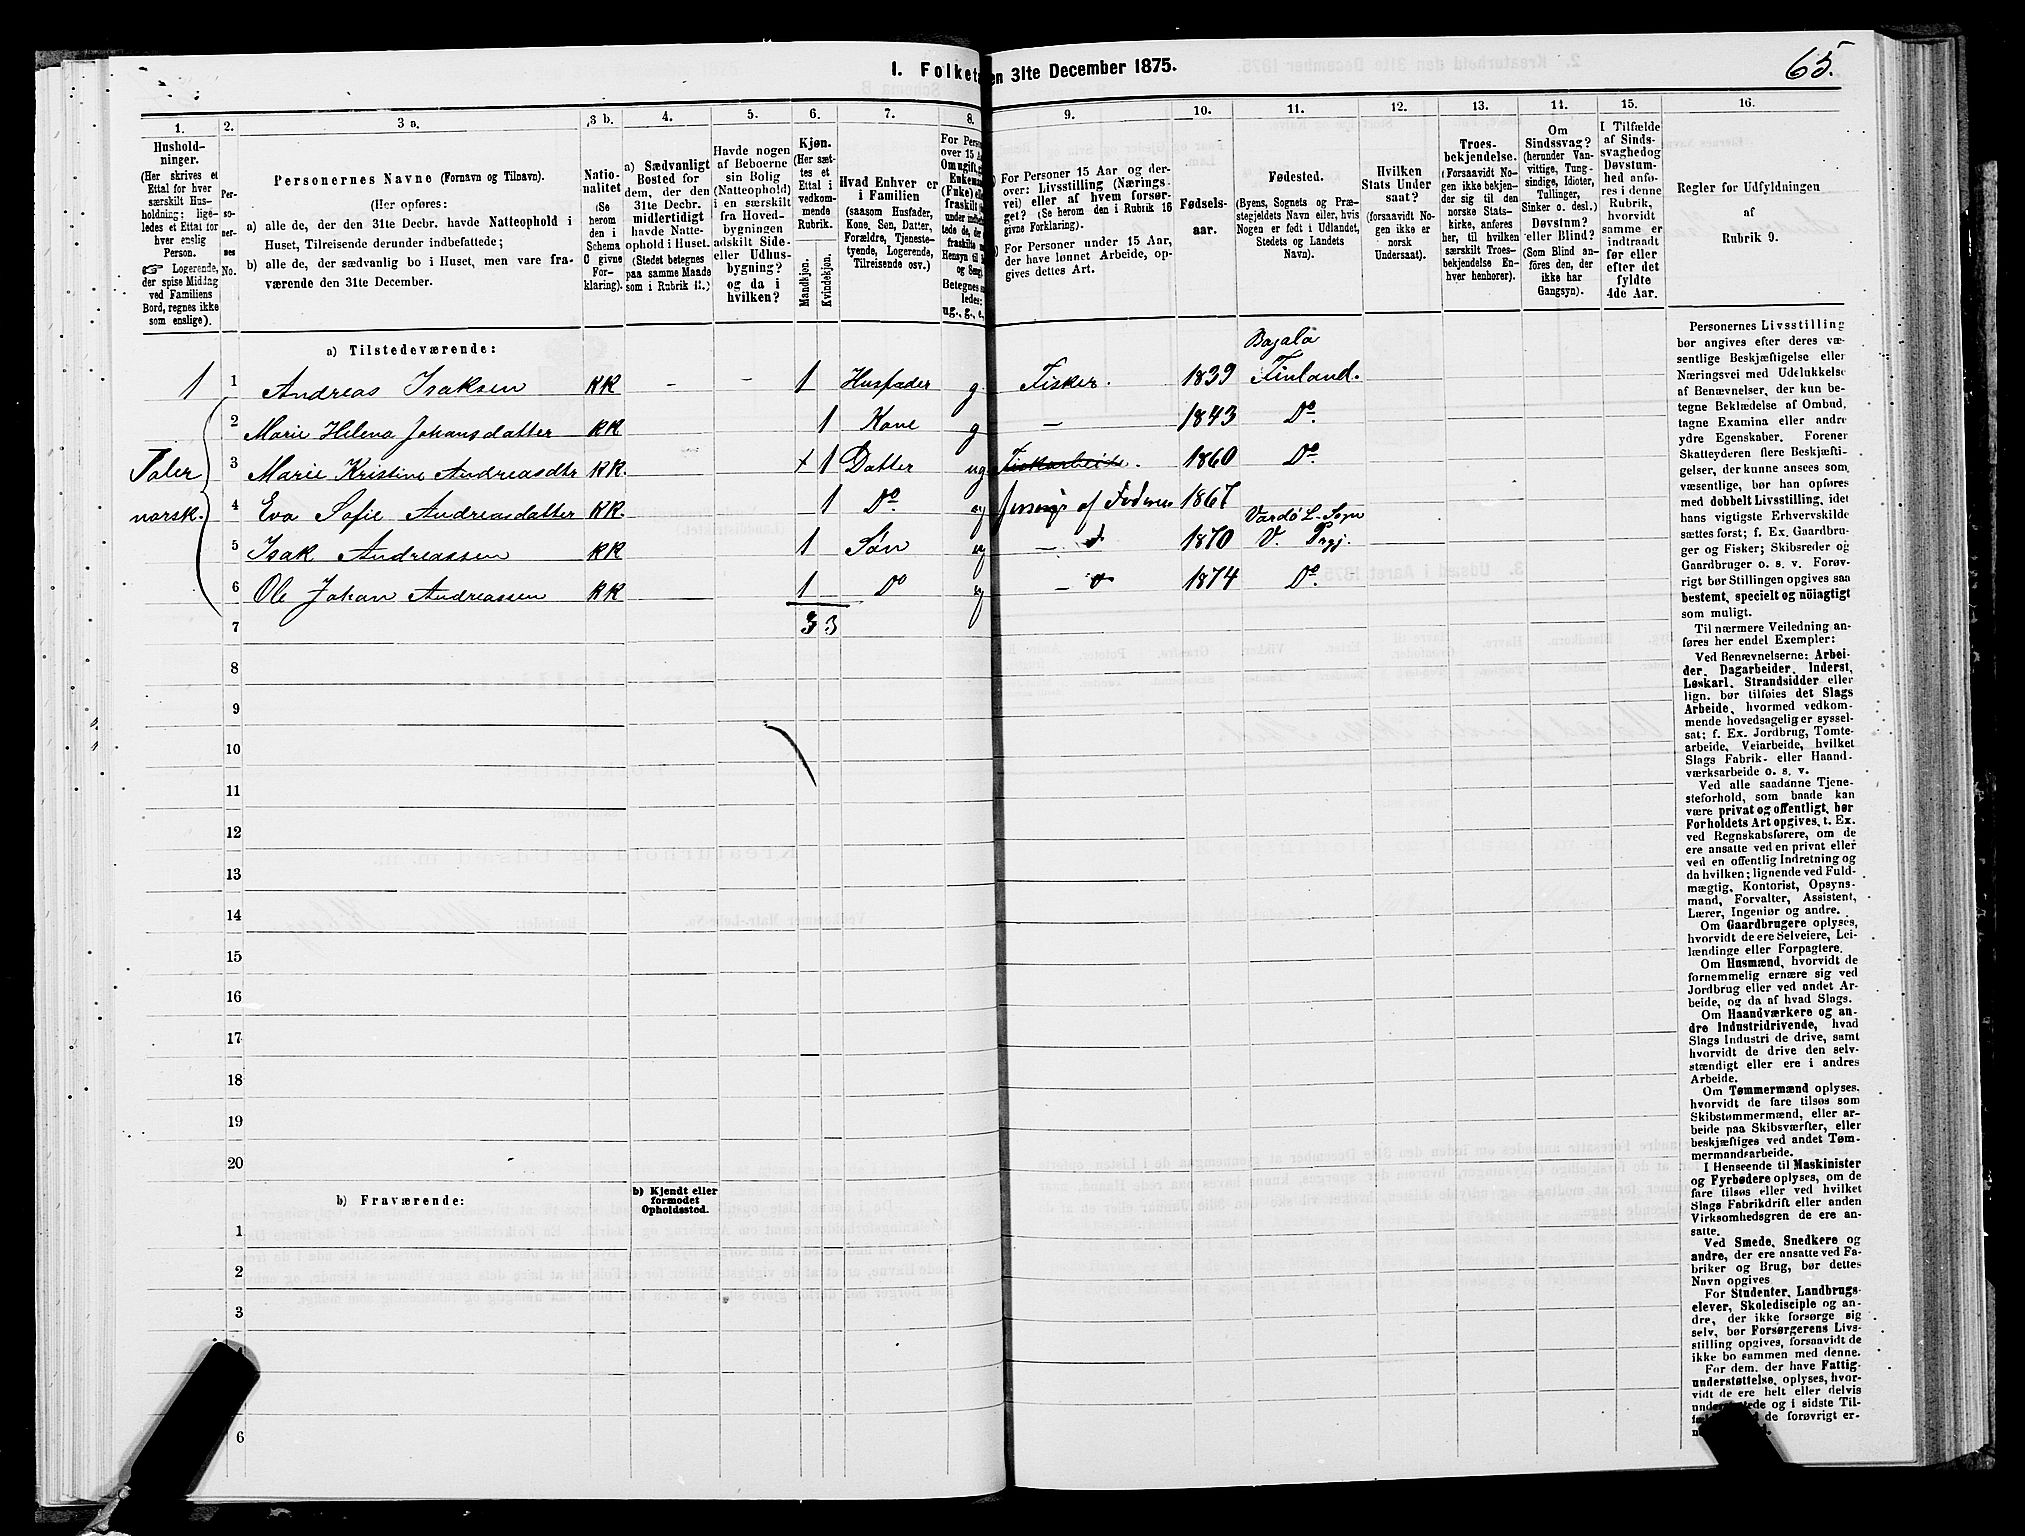 65.
1. Folketæ
en 31te December 1875.
1. 2. 3 a. 3 b. 4. 5. 6. 7. 8. 9. 10. 11. 12. 13. 14. 15. 16.
Hushold-
ninger.
(Her skrives et
Ettal for hver
særskilt Hus-
holdning; lige-
ledes et Ettal for
hver enslig
Person.
☞ Logerende,
der spise Middag
ved Familiens
Bord, regnes ikke
som enslige).
Per-
so-
ner-
nes
No.
Personernes Navne (Fornavn og Tilnavn).
(Her opføres:
a) alle de, der den 31te Decbr. havde Natteophold i
Huset, Tilreisende derunder indbefattede;
b) alle de, der sædvanlig bo i Huset, men vare fra-
værende den 31te December.
Natio-
nalitet
(Se
herom
den i
Schema
C givne
For-
klaring).
a) Sædvanligt
Bosted for
dem, der den
31te Decbr.
midlertidigt
havde Natte-
ophold i Huset.
(Stedet betegnes
paa samme Maade
som i Rubrik 11.)
Havde nogen
af Beboerne
sin Bolig
(Natteophold)
i en særskilt
fra Hoved-
bygningen
adskilt Side-
eller Udhus-
bygning?
og da i
hvilken?
Kjøn.
(Her sæt-
tes et
Ettal i
vedkom-
mende
Rubrik.
Mandkjøn.
Kvindekjøn.
Hvad Enhver er
i Familien
(saasom Husfader,
Kone, Søn, Datter,
Forældre, Tjeneste-
tyende, Logerende,
Tilreisende osv.)
For Person
over 15 A
Om ugift, g
Enkeman
(Fnke) el
fraskilt
under indb
tede de, der
fraskilte
Hensyn til
og Seng)
Betegnes
ledes:
ug., g., e.,
a) For Personer 15 Aar og der-
over: Livsstilling (Nærings-
vei) eller af hvem forsør-
get? (Se herom den i Rubrik 16
givne Forklaring).
b) For Personer under 15 Aar,
der have lønnet Arbeide, op-
gives dettes Art.
Fødsels-
aar.
Fødested.
(Byens, Sognets og Præ-
stegjeldets Navn eller, hvis
Nogen er født i Udlandet,
Stedets og Landets
Navn).
Hvilken
Stats Under
saat?
(forsaavidt No-
gen ikke er
norsk
Undersaat).
Troes-
bekjendelse.
(Forsaavidt No-
gen ikke bekjen-
der sig til den
norske Stats-
kirke, anføres
her, til hvilken
særskilt Troes-
bekjendelse En-
hver henhorer).
Om
Sindssvag?
(herunder Van-
vittige, Tung-
sindige, Idioter,
Tullinger,
Sinker o. desl.)
Døvstum?
eller Blind?
(Som Blind an-
føres den, der
ikke har
Gangsyn).
I Tilfælde
af Sinds-
svaghed og
Døvstum-
hed anfø-
res i denne
Rubrik,
hvorvidt
samme er
indtraadt
før eller
efter det
fyldte
4de Aar.
Regler for Udfyldningen
af
Rubrik 9.
a) Tilstedeværende:
Bajala
1 1 Andreas Isaksen KK - - 1 Husfader g. Fisker. 1839 Finland.
2 Marie Helena Johansdatter KK 1 Kone g - 1843 Do.
Taler
3 Marie Kristine Andreasdtr KK. + 1 Datter ug Fiskarbeide. 1860 Do.
norsk.
4 Eva Sofie Andreasdatter KK. 1 Do ug forsørges af Faderen 1867
Vardø L-Sogn
5 Isak Andreassen KK 1 Søn ug - d 1870 V. Prgj.
6 Ole Johan Andreassen KK 1 Do ug - o 1874 Do.
7 3 3
8
9
10
11
12
13
14
15
16
17
18
19
20
b) Fraværende:
b) Kjendt eller
formodet
Opholdssted.
1
2
3
6
Personernes Livsstilling
bør angives efter deres væ-
sentlige Beskjæftigelse eller
Næringsvei med Udelukkelse
af Benævnelser, der kun be-
tegne Beklædelse af Ombud,
tagne Examina eller andre
ydre Egenskaber. Forener
Skatteyderen flere Beskjæfti-
gelser, der kunne ansees som
væsentlige, bør han opføres
med dobbelt Livsstilling, idet
hans vigtigste Erhvervskilde
sættes først; f. Ex. Gaardbru-
ger og Fisker; Skibsreder og
Gaardbruger o. s. v. Forøv-
rigt bør Stillingen opgives saa
bestemt, specielt og nöiagtigt
som muligt.
Til nærmere Veiledning an-
føres her endel Exempler:
Ved Benævnelserne: Arbei-
der, Dagarbeider, Inderst,
Løskarl, Strandsidder eller
lign. bør tilføies det Slags
Arbeide, hvormed vedkom-
mende hovedsagelig er syssel-
sat; f. Ex. Jordbrug, Tomte-
arbeide, Veiarbeide, hvilket
Slags Fabrik- eller Haand-
værksarbeide o. s. v.
Ved alle saadanne Tjene-
steforhold, som baade kan
være privat og offentligt, bør
Forholdets Art opgives, t. Ex.
ved Regnskabsførere, om de
ere ansatte ved en privat eller
ved en offentlig Indretning og
da hvilken; lignende ved Fuld-
mægtig, Kontorist, Opsyns-
mand, Forvalter, Assistent,
Lærer, Ingeniør og andre.
Om Gaardbrugere oplyses,
hvorvidt de ere Selveiere, Lei-
lændinge eller Forpagtere.
Om Husmænd, hvorvidt de
fornemmelig ernære sig ved
Jordbrug eller ved andet Ar-
beide, og da af hvad Slags.
Om Haandværkere og an-
dre Industridrivende, hvad
Slags Industri de drive, samt
hvorvidt de drive den selv-
stændigt eller ere i andres
Arbeide.
Om Tømmermænd oplyses,
hvorvidt de fare tilsøs som
Skibstømmermænd, eller ar-
beide paa Skibsværfter, eller
beskjæftiges ved andet Tøm-
mermandsarbeide.
I Henseende til Maskinister
og Fyrbødere oplyses, om de
fare tilsøs eller ved hvilket
Slags Fabrikdrift eller anden
Virksomhedsgren de ere an-
satte.
Ved Smede, Snedkere og
andre, der ere ansatte ved Fa-
briker og Brug, bør dettes
Navn opgives
For Studenter, Landbrugs-
elever, Skoledisciple og an-
dre, der ikke forsørge sig
selv, bør Forsørgerens Livs-
stilling opgives, forsaavidt de
ikke bo sammen med denne.
For dem, der have Fattig-
understøttelse, oplyses, hvor-
vidt de ere helt eller delvis
tede og i sidste Til-
de forøvrigt er-